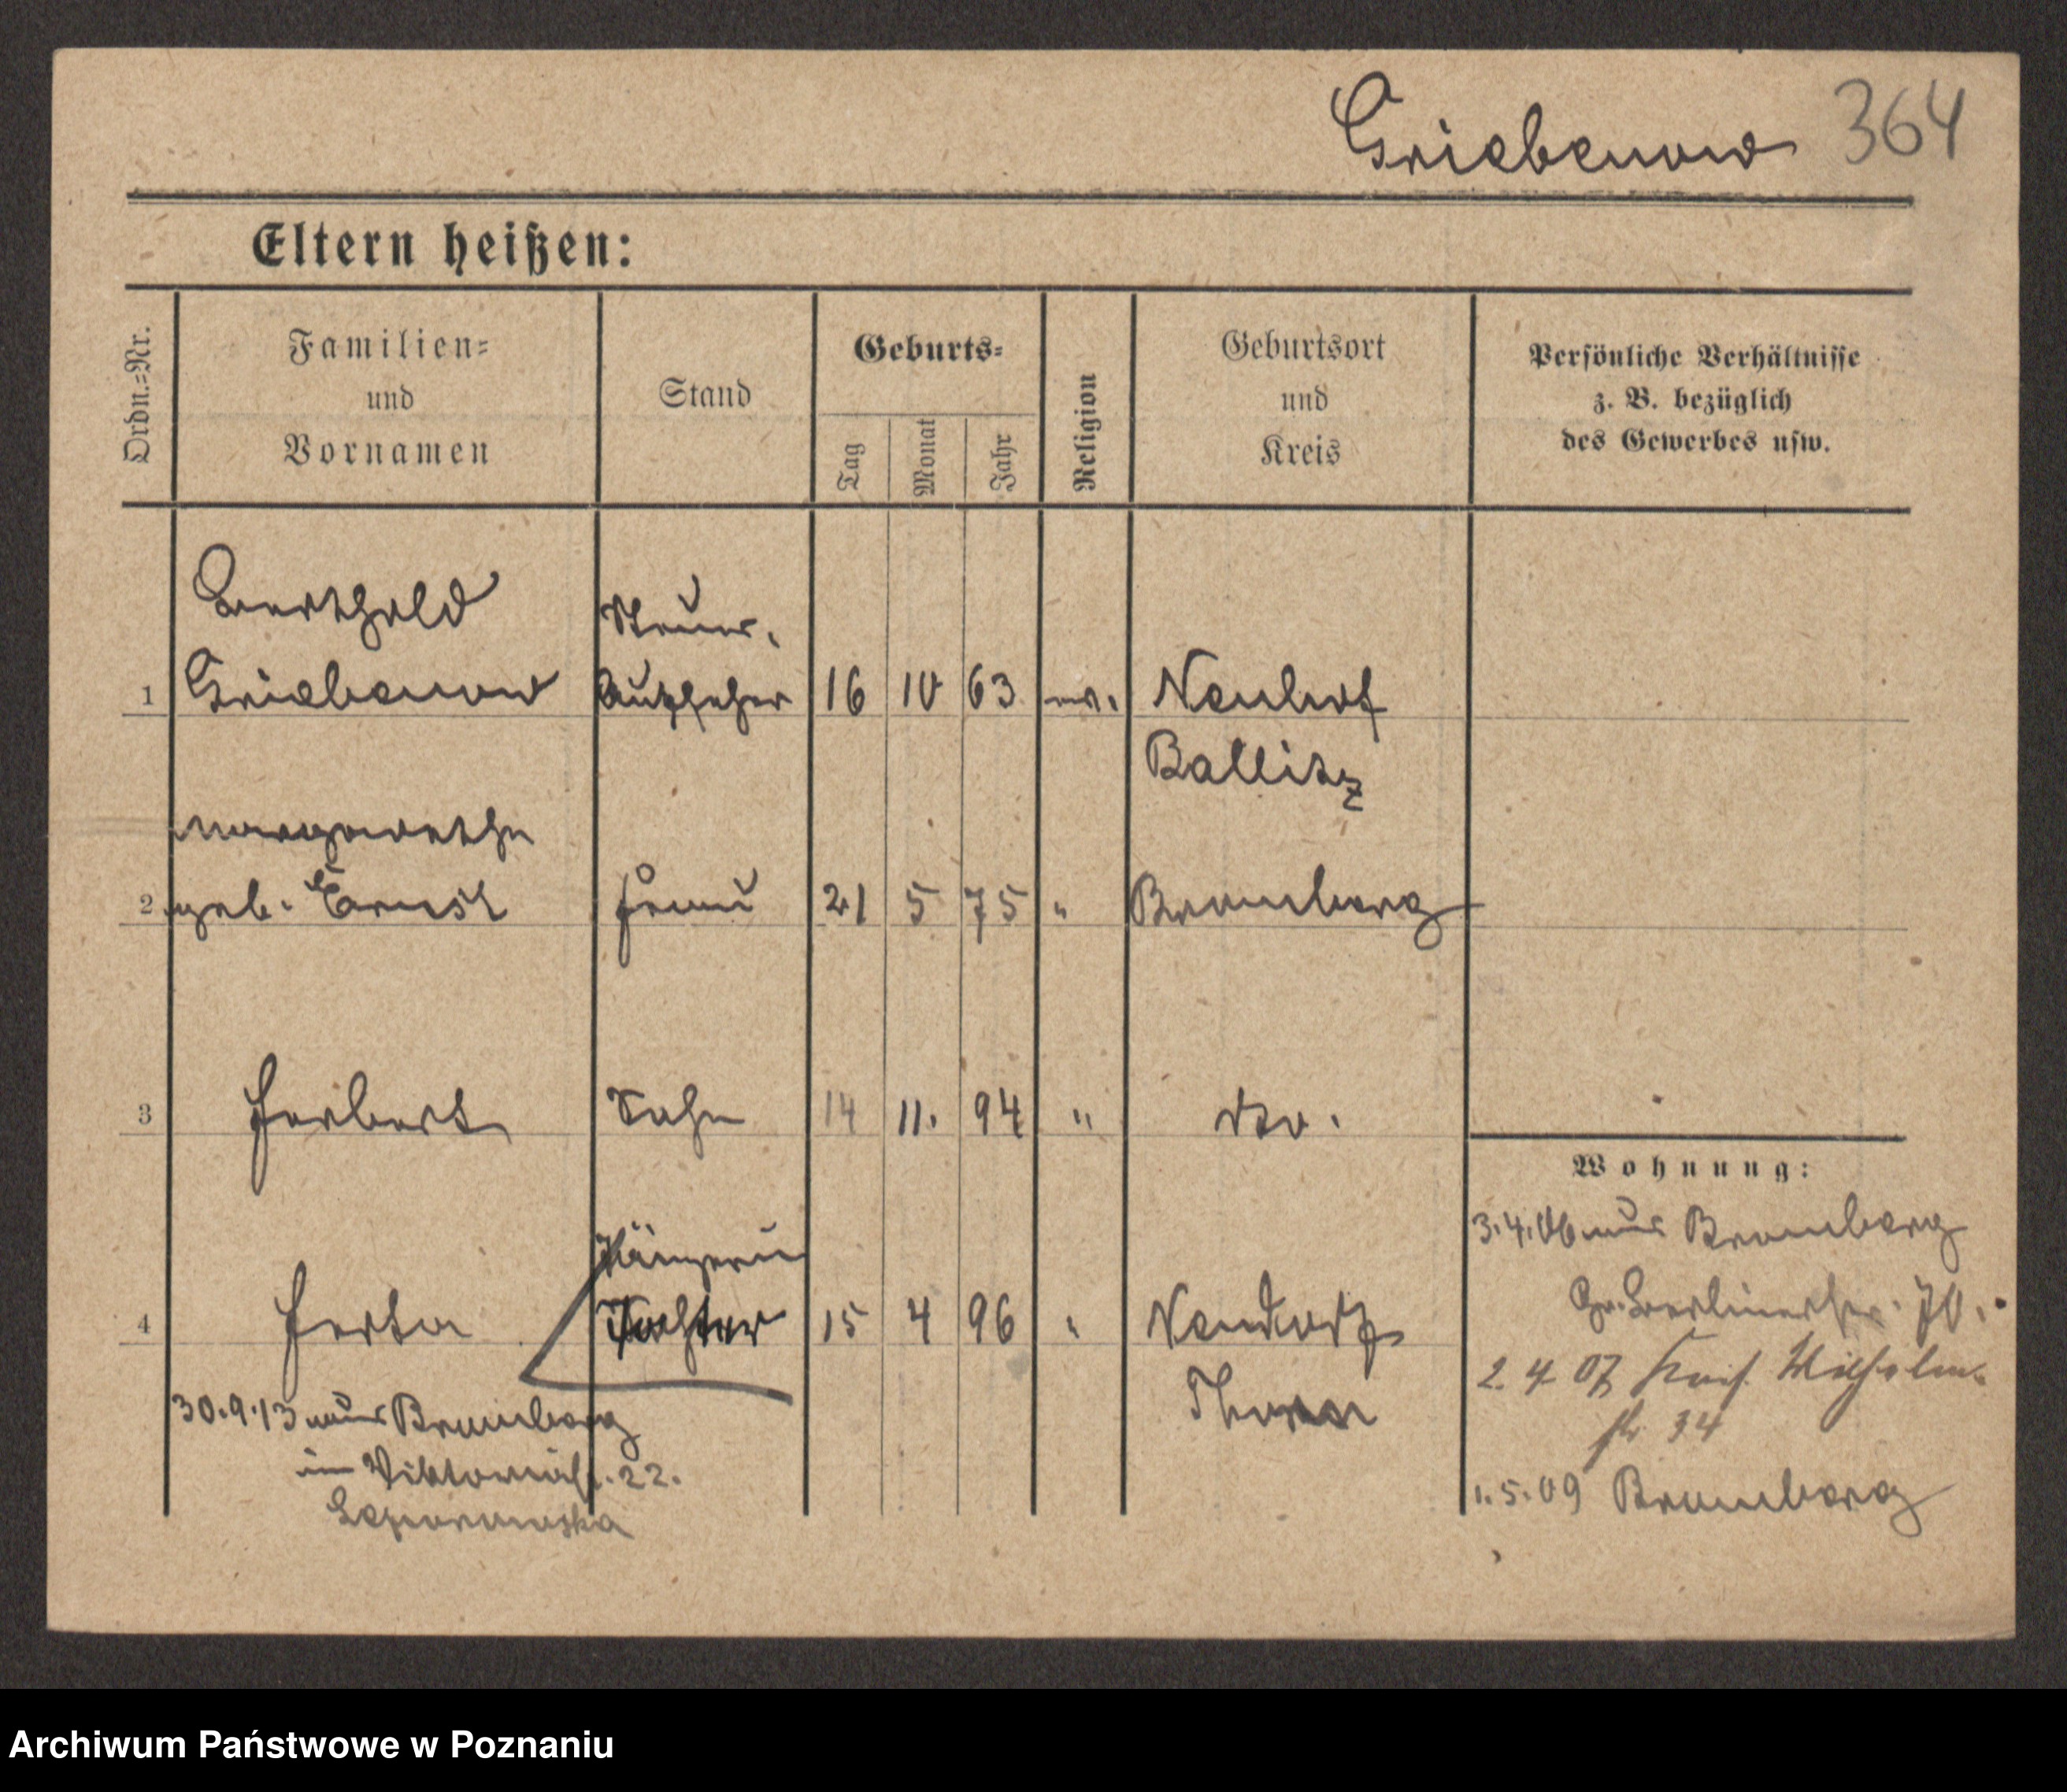 Griebenow 364
Eltern heißen:
Ordn.=Nr.
Familien=
und
Vornamen
Stand
Geburts=
Tag
Monat
Jahr
Religion
Geburtsort
und
Kreis
Persönliche Verhältnisse
z. B. bezüglich
des Gewerbes usw.
Berthold Steuer-
1 Griebenow Aufseher 16 10 63 ev. Neuhof
Ballitz
Margarethe
2 geb. Ernst Frau 21 5 75 " Bromberg
3 Herbert Sohn 14 11. 94 " dto.
Wohnung:
3.4.06 aus Bromberg
Sängerin
4 Herta Tochter 15 4 96 " Neudorf
Thorn
Berlinerstr. 70.
2. 4 07 Kais. Wilhelm-
str 34
1.5.09 Bromberg
30.9.13 aus Bromberg
in Viktoriastr. 22.
Archiwum Państwowe w Poznaniu